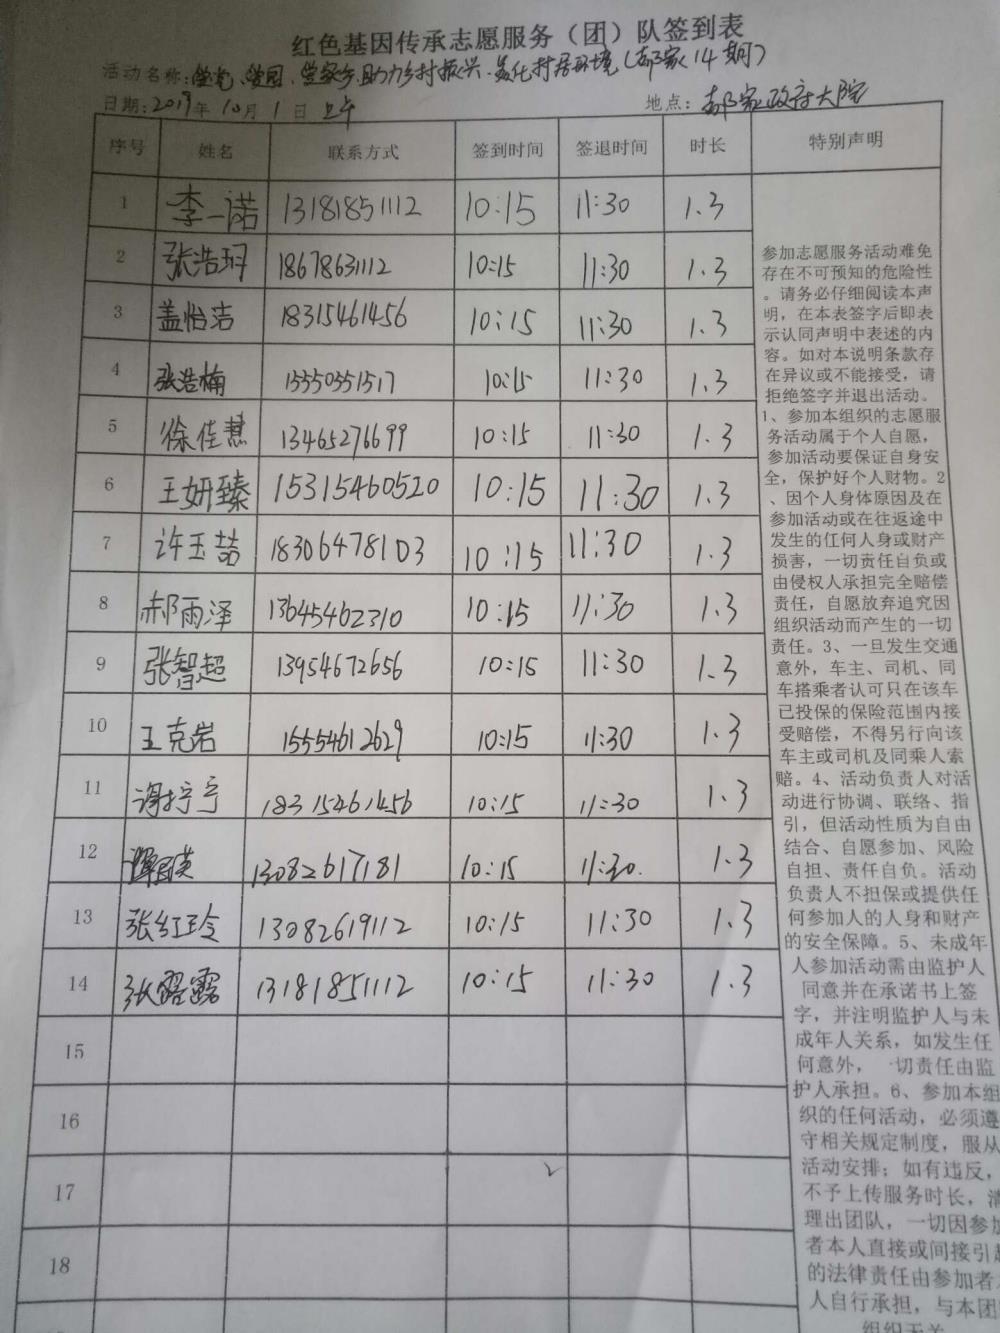 红色基因传承志愿服务（团）队签到表
活动名称：学党、爱国、爱家乡、助力乡村振兴、美化村居环境（郝家14期）
日期：2019年10月1日 上午 地点：郝家政府大院
序号 姓名 联系方式 签到时间 签退时间 时长 特别声明
1 李一诺 13181851112 10:15 11:30 1.3
2 张浩玥 18678631112 10:15 11:30 1.3
3 盖怡洁 18315461456 10:15 11:30 1.3
4 张浩楠 15550551517 10:15 11:30 1.3
5 徐佳慧 13465276699 10:15 11:30 1.3
6 王妍臻 15315460520 10:15 11:30 1.3
7 许玉喆 18306478103 10:15 11:30 1.3
8 郝雨泽 13645462310 10:15 11:30 1.3
9 张智超 13954672656 10:15 11:30 1.3
10 王克岩 15554612629 10:15 11:30 1.3
11 宁 18315461456 10:15 11:30 1.3
12 英 13082617181 10:15 11:30. 1.3
13 张红玲 13082619112 10:15 11:30 1.3
14 张露露 13181851112 10:15 11:30 1.3
15
16
17
18
参加志愿服务活动难免
存在不可预知的危险性
。请务必仔细阅读本声
明，在本表签字后即表
示认同声明中表述的内
容。如对本说明条款存
在异议或不能接受，请
拒绝签字并退出活动。
1、参加本组织的志愿服
务活动属于个人自愿，
参加活动要保证自身安
全，保护好个人财物。2
、因个人身体原因及在
参加活动或在往返途中
发生的任何人身或财产
损害，一切责任自负或
由侵权人承担完全赔偿
责任，自愿放弃追究因
组织活动而产生的一切
责任。3、一旦发生交通
意外，车主、司机、同
车搭乘者认可只在该车
已投保的保险范围内接
受赔偿，不得另行向该
车主或司机及同乘人索
赔。4、活动负责人对活
动进行协调、联络、指
引，但活动性质为自由
结合、自愿参加、风险
自担、责任自负。活动
负责人不担保或提供任
何参加人的人身和财产
的安全保障。5、未成年
人参加活动需由监护人
同意并在承诺书上签
字，并注明监护人与未
成年人关系，如发生任
何意外，一切责任由监
护人承担。6、参加本组
织的任何活动，必须遵
守相关规定制度，服从
活动安排；如有违反，
不予上传服务时长，清
理出团队，一切因参加
者本人直接或间接引起
的法律责任由参加者
人自行承担，与本团
组织无关